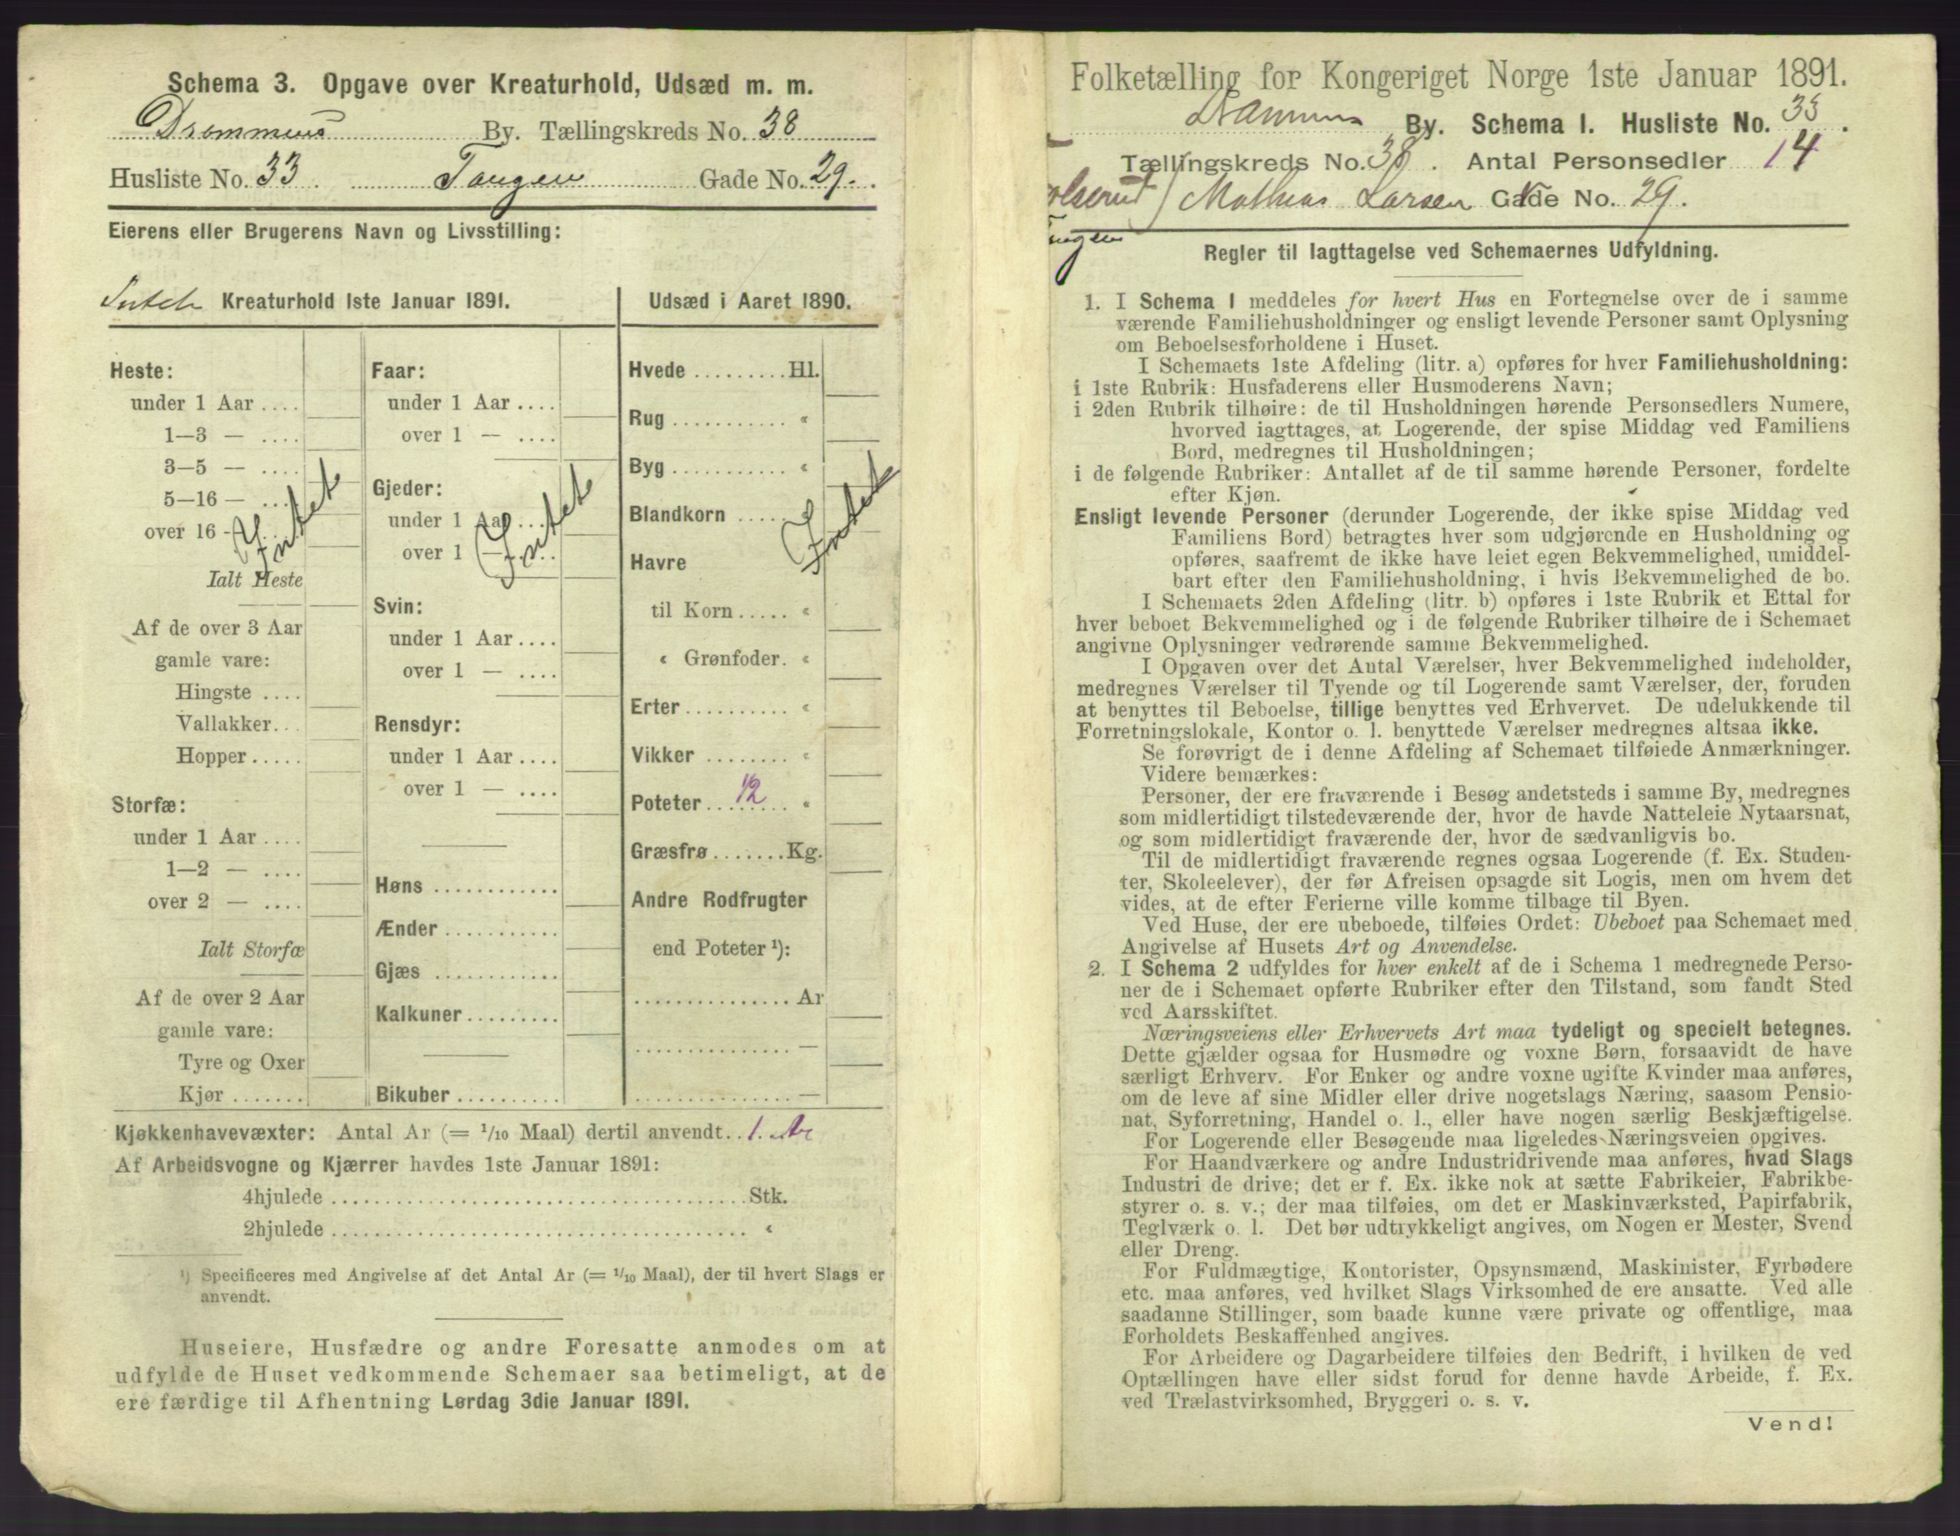 Schema 3. Opgave over Kreaturhold, Udsæd m. m.
Drammens By. Tællingskreds No. 38
Husliste No. 33. Tangen Gade No. 29.
Eierens eller Brugerens Navn og Livsstilling:
Intet Kreaturhold 1ste Januar 1891.
Heste:
under 1 Aar ....
1—3 — ....
3—5 — ....
5—16 — ....
over 16 —
Intet
Ialt Heste
Af de over 3 Aar
gamle vare:
Hingste ....
Vallakker...
Hopper.....
Storfæ:
under 1 Aar ....
1—2 — ....
over 2 — ....
Ialt Storfæ
Af de over 2 Aar
gamle vare:
Tyre og Oxer
Kjør .......
Faar:
under 1 Aar ....
over 1 — ....
Gjeder:
under 1 Aar ....
over 1 — ....
Intet
Svin:
under 1 Aar ....
over 1 — ....
Rensdyr:
under 1 Aar ....
over 1 — ....
Høns ............
Ænder ...........
Gjæs ............
Kalkuner.........
Bikuber ..........
Udsæd i Aaret 1890.
Hvede ......... Hl.
Rug ........... «
Byg ........... «
Blandkorn ......
Intet
Havre
til Korn ..... «
« Grønfoder. «
Erter.......... «
Vikker ........ «
Poteter... 1/2 ... «
Græsfrø....... Kg.
Andre Rodfrugter
end Poteter ¹):
............... Ar
............... —
............... —
Kjøkkenhavevæxter: Antal Ar (= 1/10 Maal) dertil anvendt.. 1. Ar
Af Arbeidsvogne og Kjærrer havdes 1ste Januar 1891:
4hjulede ....................................... Stk.
2hjulede ....................................... «
¹) Specificeres med Angivelse af det Antal Ar (= 1/10 Maal), der til hvert Slags er
anvendt.
Huseiere, Husfædre og andre Foresatte anmodes om at
udfylde de Huset vedkommende Schemaer saa betimeligt, at de
ere færdige til Afhentning Lørdag 3die Januar 1891.
Folketælling for Kongeriget Norge 1ste Januar 1891.
Drammens By. Schema I. Husliste No. 33.
Tællingskreds No. 38. Antal Personsedler 14
Mathias Larsen Gade No. 29.
Regler til Iagttagelse ved Schemaernes Udfyldning.
1. I Schema I meddeles for hvert Hus en Fortegnelse over de i samme
værende Familiehusholdninger og ensligt levende Personer samt Oplysning
om Beboelsesforholdene i Huset.
I Schemaets 1ste Afdeling (litr. a) opføres for hver Familiehusholdning:
i 1ste Rubrik: Husfaderens eller Husmoderens Navn;
i 2den Rubrik tilhøire: de til Husholdningen hørende Personsedlers Numere,
hvorved iagttages, at Logerende, der spise Middag ved Familiens
Bord, medregnes til Husholdningen;
i de følgende Rubriker: Antallet af de til samme hørende Personer, fordelte
efter Kjøn.
Ensligt levende Personer (derunder Logerende, der ikke spise Middag ved
Familiens Bord) betragtes hver som udgjørende en Husholdning og
opføres, saafremt de ikke have leiet egen Bekvemmelighed, umiddel-
bart efter den Familiehusholdning, i hvis Bekvemmelighed de bo.
I Schemaets 2den Afdeling (litr. b) opføres i 1ste Rubrik et Ettal for
hver beboet Bekvemmelighed og i de følgende Rubriker tilhøire de i Schemaet
angivne Oplysninger vedrørende samme Bekvemmelighed.
I Opgaven over det Antal Værelser, hver Bekvemmelighed indeholder,
medregnes Værelser til Tyende og til Logerende samt Værelser, der, foruden
at benyttes til Beboelse, tillige benyttes ved Erhvervet. De udelukkende til
Forretningslokale, Kontor o. l. benyttede Værelser medregnes altsaa ikke.
Se forøvrigt de i denne Afdeling af Schemaet tilføiede Anmærkninger.
Videre bemærkes:
Personer, der ere fraværende i Besøg andetsteds i samme By, medregnes
som midlertidigt tilstedeværende der, hvor de havde Natteleie Nytaarsnat,
og som midlertidigt fraværende der, hvor de sædvanligvis bo.
Til de midlertidigt fraværende regnes ogsaa Logerende (f. Ex. Studen-
ter, Skoleelever), der før Afreisen opsagde sit Logis, men om hvem det
vides, at de efter Ferierne ville komme tilbage til Byen.
Ved Huse, der ere ubeboede, tilføies Ordet: Ubeboet paa Schemaet med
Angivelse af Husets Art og Anvendelse.
2. I Schema 2 udfyldes for hver enkelt af de i Schema 1 medregnede Perso-
ner de i Schemaet opførte Rubriker efter den Tilstand, som fandt Sted
ved Aarsskiftet.
Næringsveiens eller Erhvervets Art maa tydeligt og specielt betegnes.
Dette gjælder ogsaa for Husmødre og voxne Børn, forsaavidt de have
særligt Erhverv. For Enker og andre voxne ugifte Kvinder maa anføres,
om de leve af sine Midler eller drive nogetslags Næring, saasom Pensio-
nat, Syforretning, Handel o. l., eller have nogen særlig Beskjæftigelse.
For Logerende eller Besøgende maa ligeledes Næringsveien opgives.
For Haandværkere og andre Industridrivende maa anføres, hvad Slags
Industri de drive; det er f. Ex. ikke nok at sætte Fabrikeier, Fabrikbe-
styrer o. s. v.; der maa tilføies, om det er Maskinværksted, Papirfabrik,
Teglværk o. l. Det bør udtrykkeligt angives, om Nogen er Mester, Svend
eller Dreng.
For Fuldmægtige, Kontorister, Opsynsmænd, Maskinister, Fyrbødere
etc. maa anføres, ved hvilket Slags Virksomhed de ere ansatte. Ved alle
saadanne Stillinger, som baade kunne være private og offentlige, maa
Forholdets Beskaffenhed angives.
For Arbeidere og Dagarbeidere tilføies den Bedrift, i hvilken de ved
Optællingen have eller sidst forud for denne havde Arbeide, f. Ex.
ved Trælastvirksomhed, Bryggeri o. s. v.
Vend!